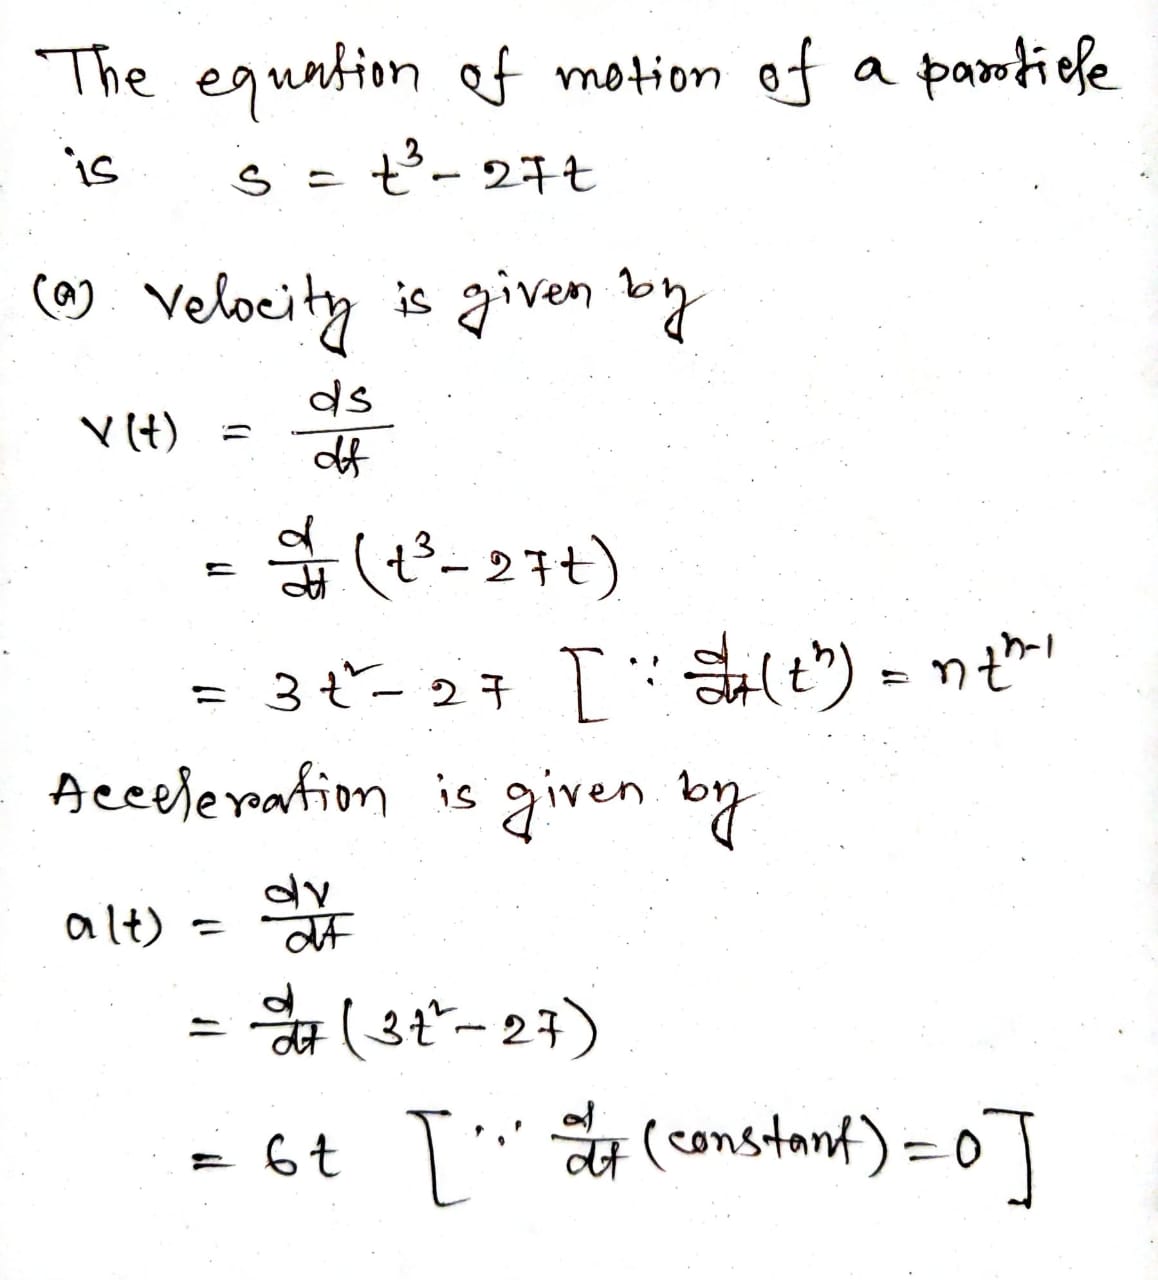 The equation of motion of a particle
is s = t³ - 27t
(a) Velocity is given by
v(t) = ds/dt
= d/dt (t³ - 27t)
= 3t² - 27 [∵ d/dt(tⁿ) = ntⁿ⁻¹
Acceleration is given by
a(t) = dv/dt
= d/dt (3t² - 27)
= 6t [∵ d/dt (constant) = 0]